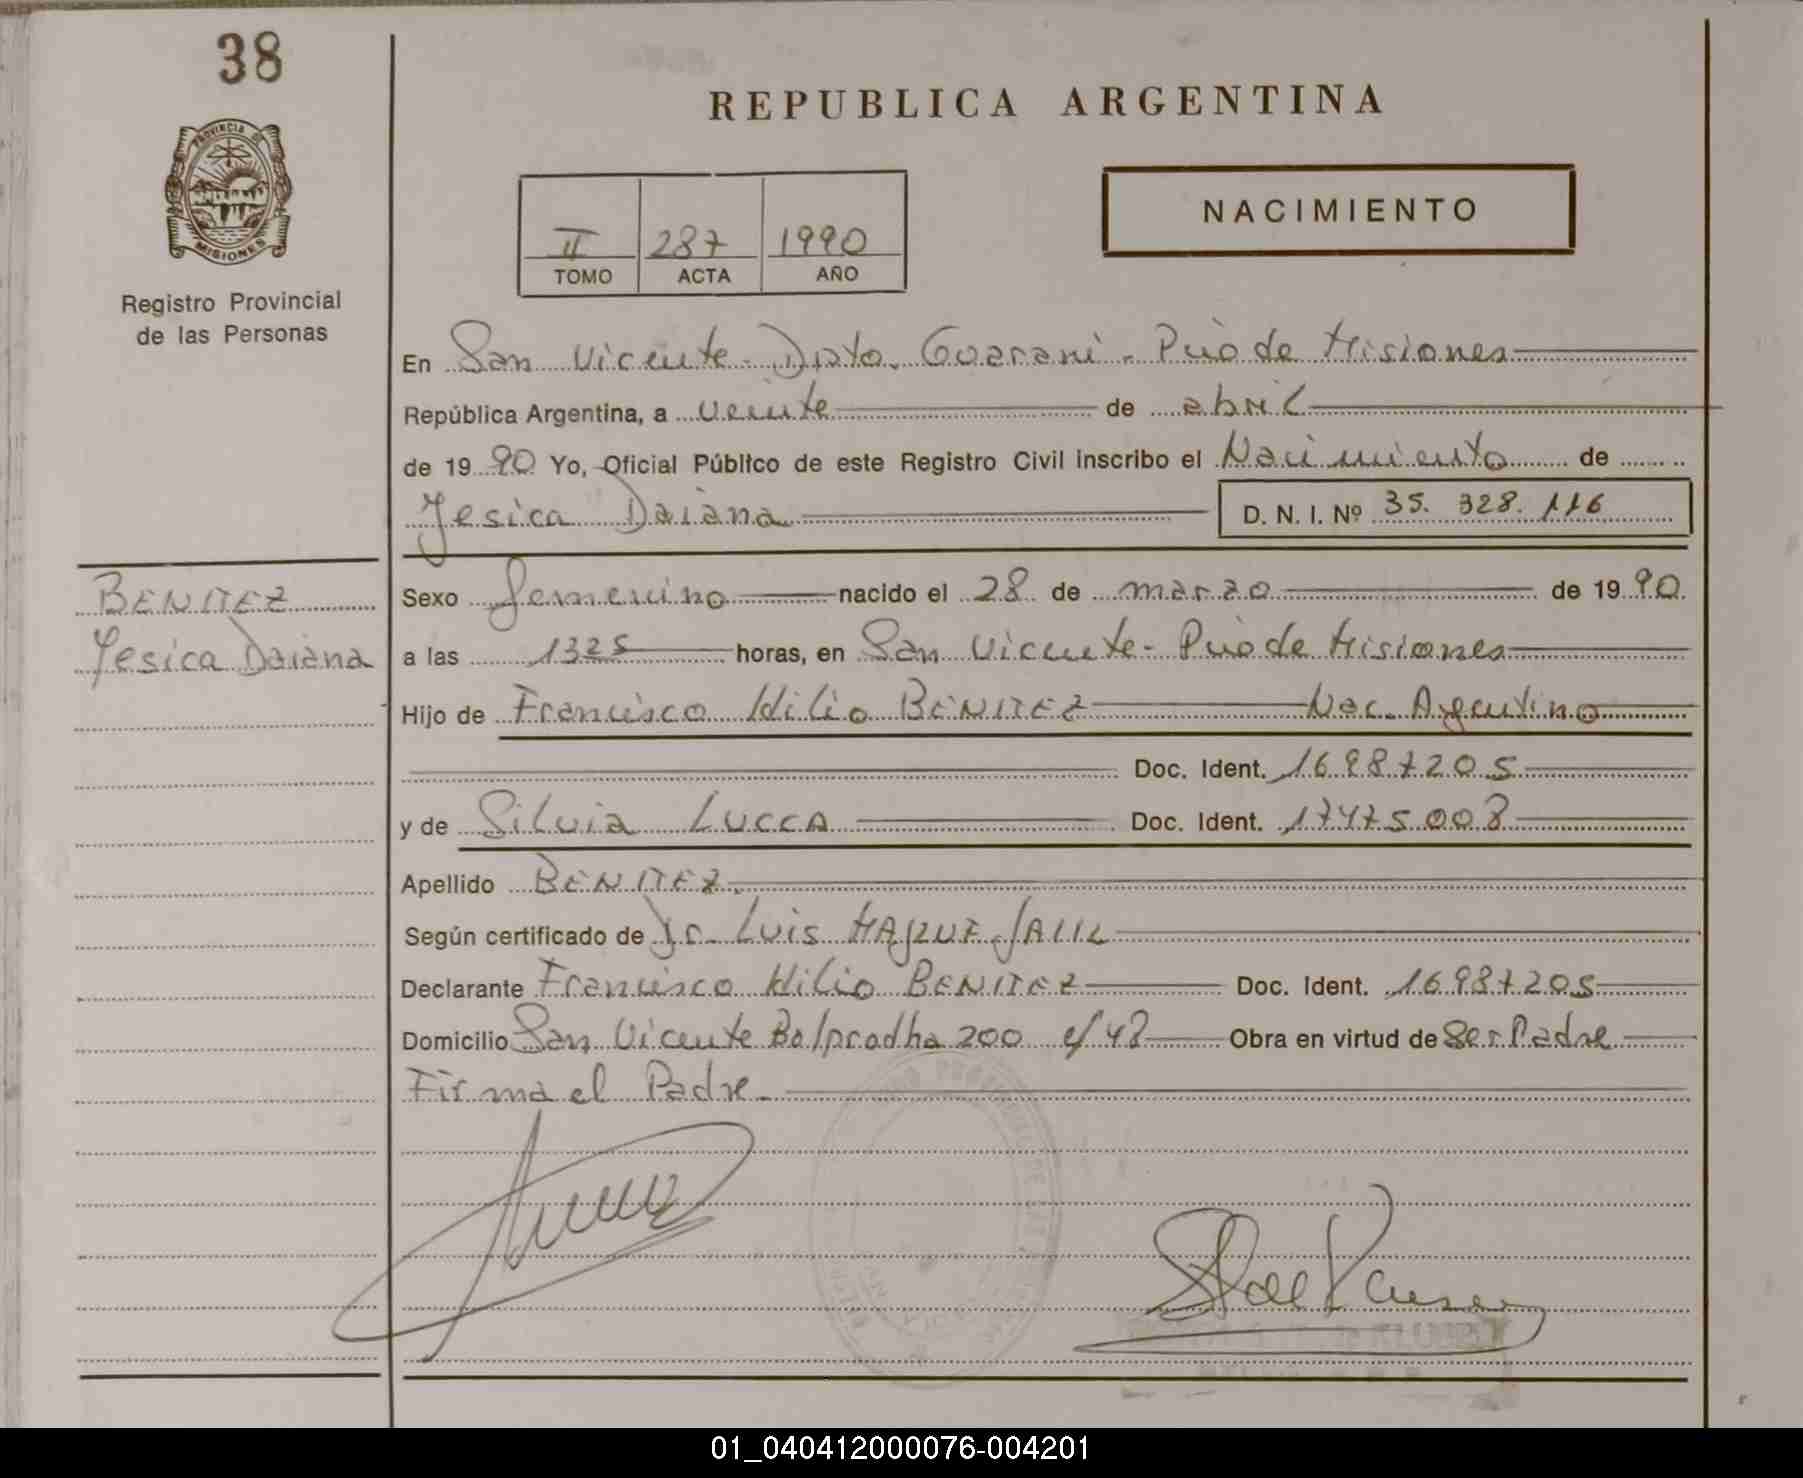 38
REPUBLICA ARGENTINA
PROVINCIA DE
MISIONES
Registro Provincial
de las Personas
II 287 1990
TOMO ACTA AÑO
NACIMIENTO
En San Vicente - Dpto. Guarani - Pcia de Misiones
República Argentina, a veinte de abril
de 19 90 Yo, Oficial Público de este Registro Civil inscribo el Nacimiento de
Yesica Daiana D. N. I. Nº 35. 328. 116
BENITEZ
Yesica Daiana
Sexo femenino nacido el 28 de marzo de 19 90
a las 1325 horas, en San Vicente - Pcia de Misiones
Hijo de Francisco Hilio BENITEZ Nac. Argentino
Doc. Ident. 16987205
y de Silvia LUCCA Doc. Ident. 17475.008
Apellido BENITEZ.
Según certificado de Dr. Luis
Declarante Francisco Hilio BENITEZ Doc. Ident. 16987205
Domicilio San Vicente 200 Obra en virtud de Ser Padre
Firma el Padre.
01_040412000076-004201